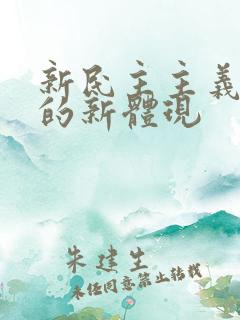 新民主主義
的新體現
朱建生
未经同意禁止转载